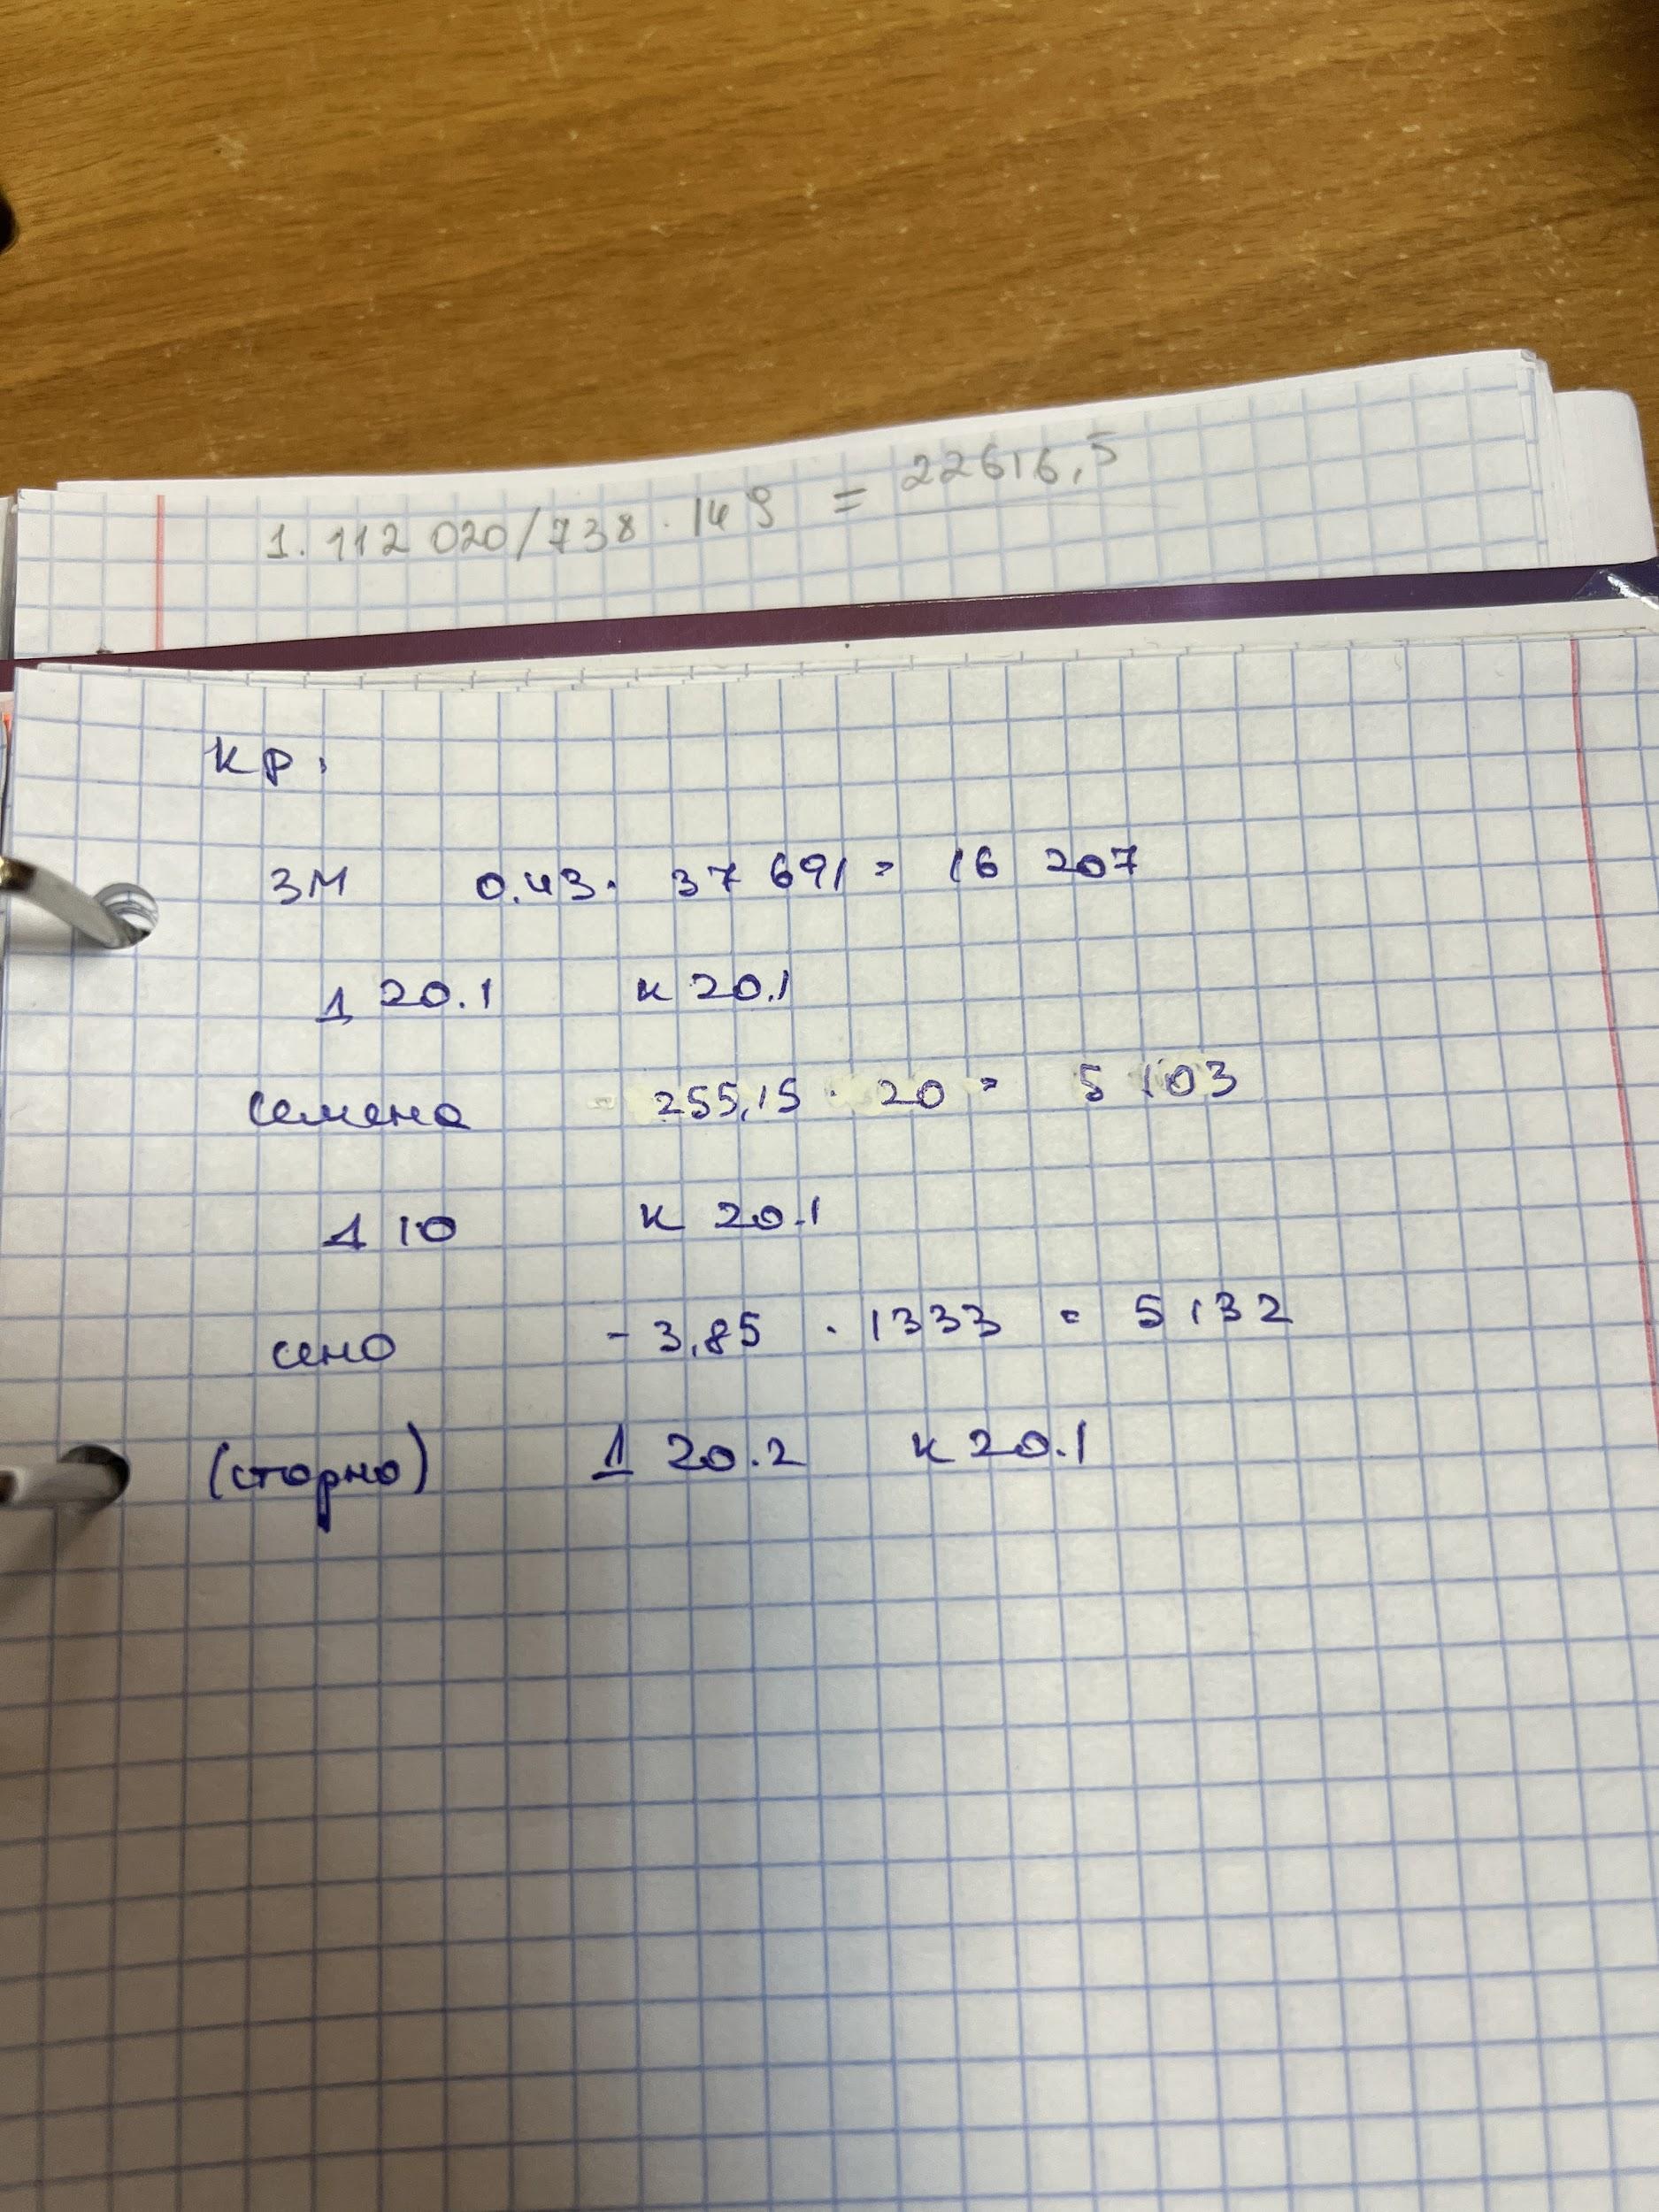 1. 112 020/738 · 149 = 22616,5
Кр.
ЗМ 0.43 · 37 691 = 16 207
Д 20.1 К 20.1
семена 255,15 · 20 = 5 103
Д 10 К 20.1
сено - 3,85 · 1333 = 5132
(сторно) Д 20.2 К 20.1